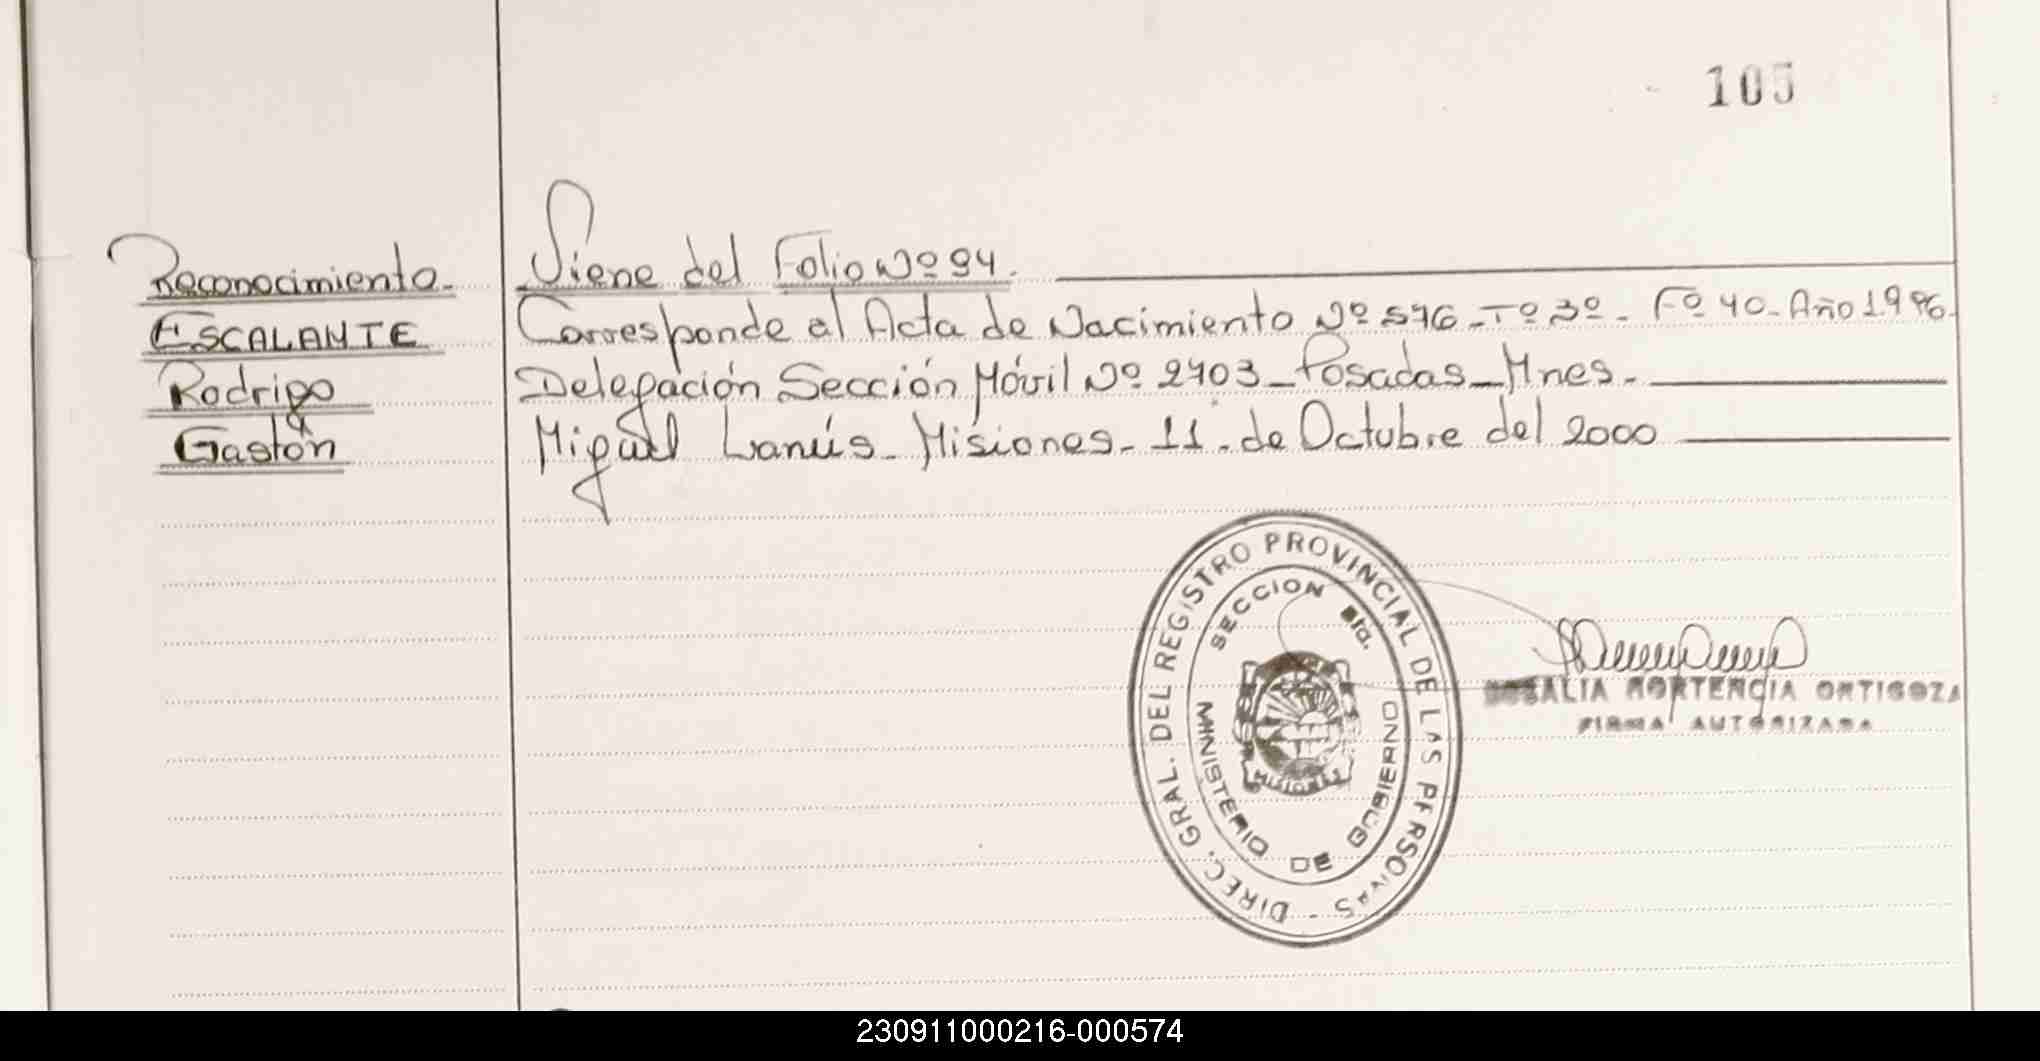 105
Reconocimiento. Viene del Folio Nº 94.
ESCALANTE Corresponde al Acta de Nacimiento Nº 546 - Tº 3º - Fº 40 - Año 1.996.
Rodrigo Delegación Sección Móvil Nº 2403 - Posadas - Mnes.
Gastón Miguel Lanús - Misiones - 11 - de Octubre del 2000
DIREC. GRAL. DEL REGISTRO PROVINCIAL DE LAS PERSONAS -
SECCION 8ra.
MISIONES
MINISTERIO DE GOBIERNO
ROSALIA HORTENCIA ORTIGOZA
FIRMA AUTORIZADA
230911000216-000574